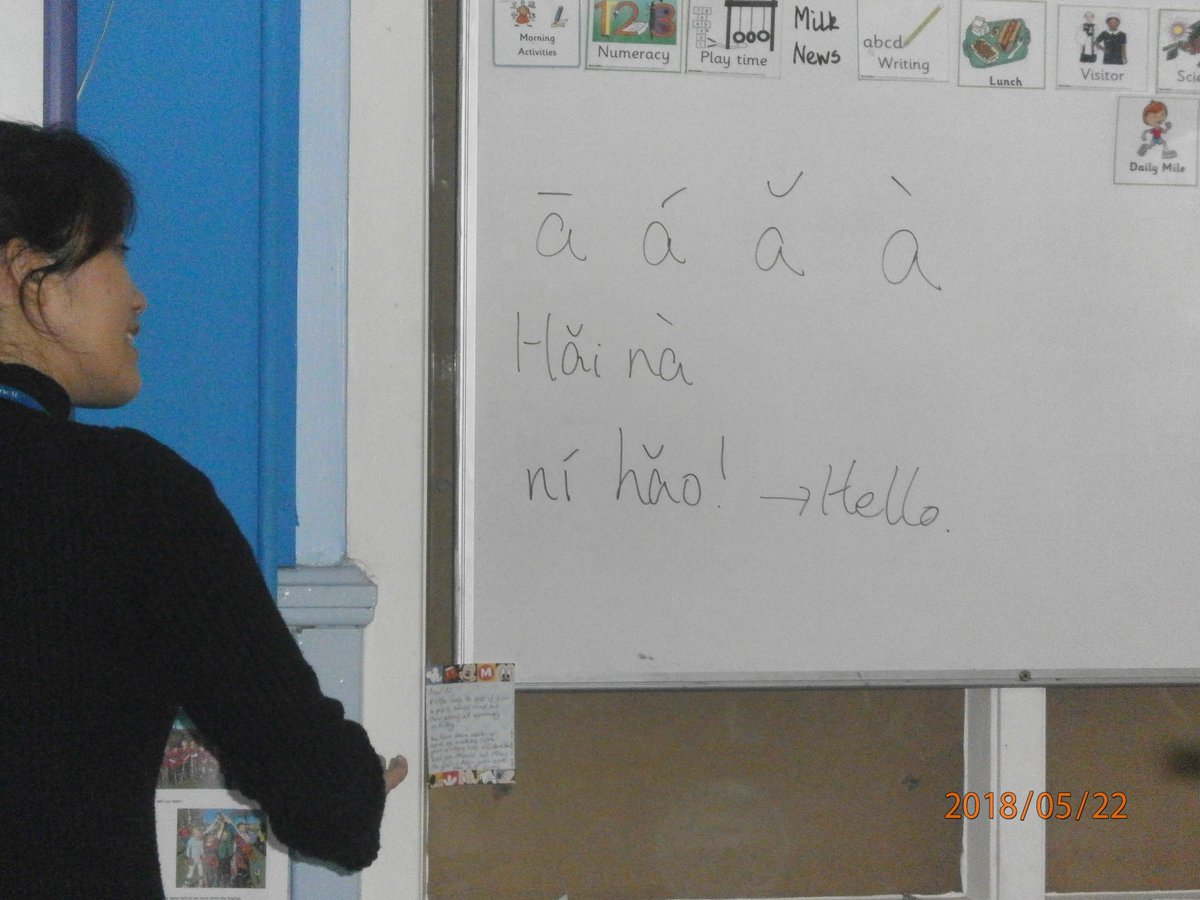 Morning
Activities
123
Numeracy
Play time
Milk
News
abcd
Writing
Lunch
Visitor
Daily Mile
ā á ǎ à
Hǎi nà
ní hǎo! →Hello.
2018/05/22